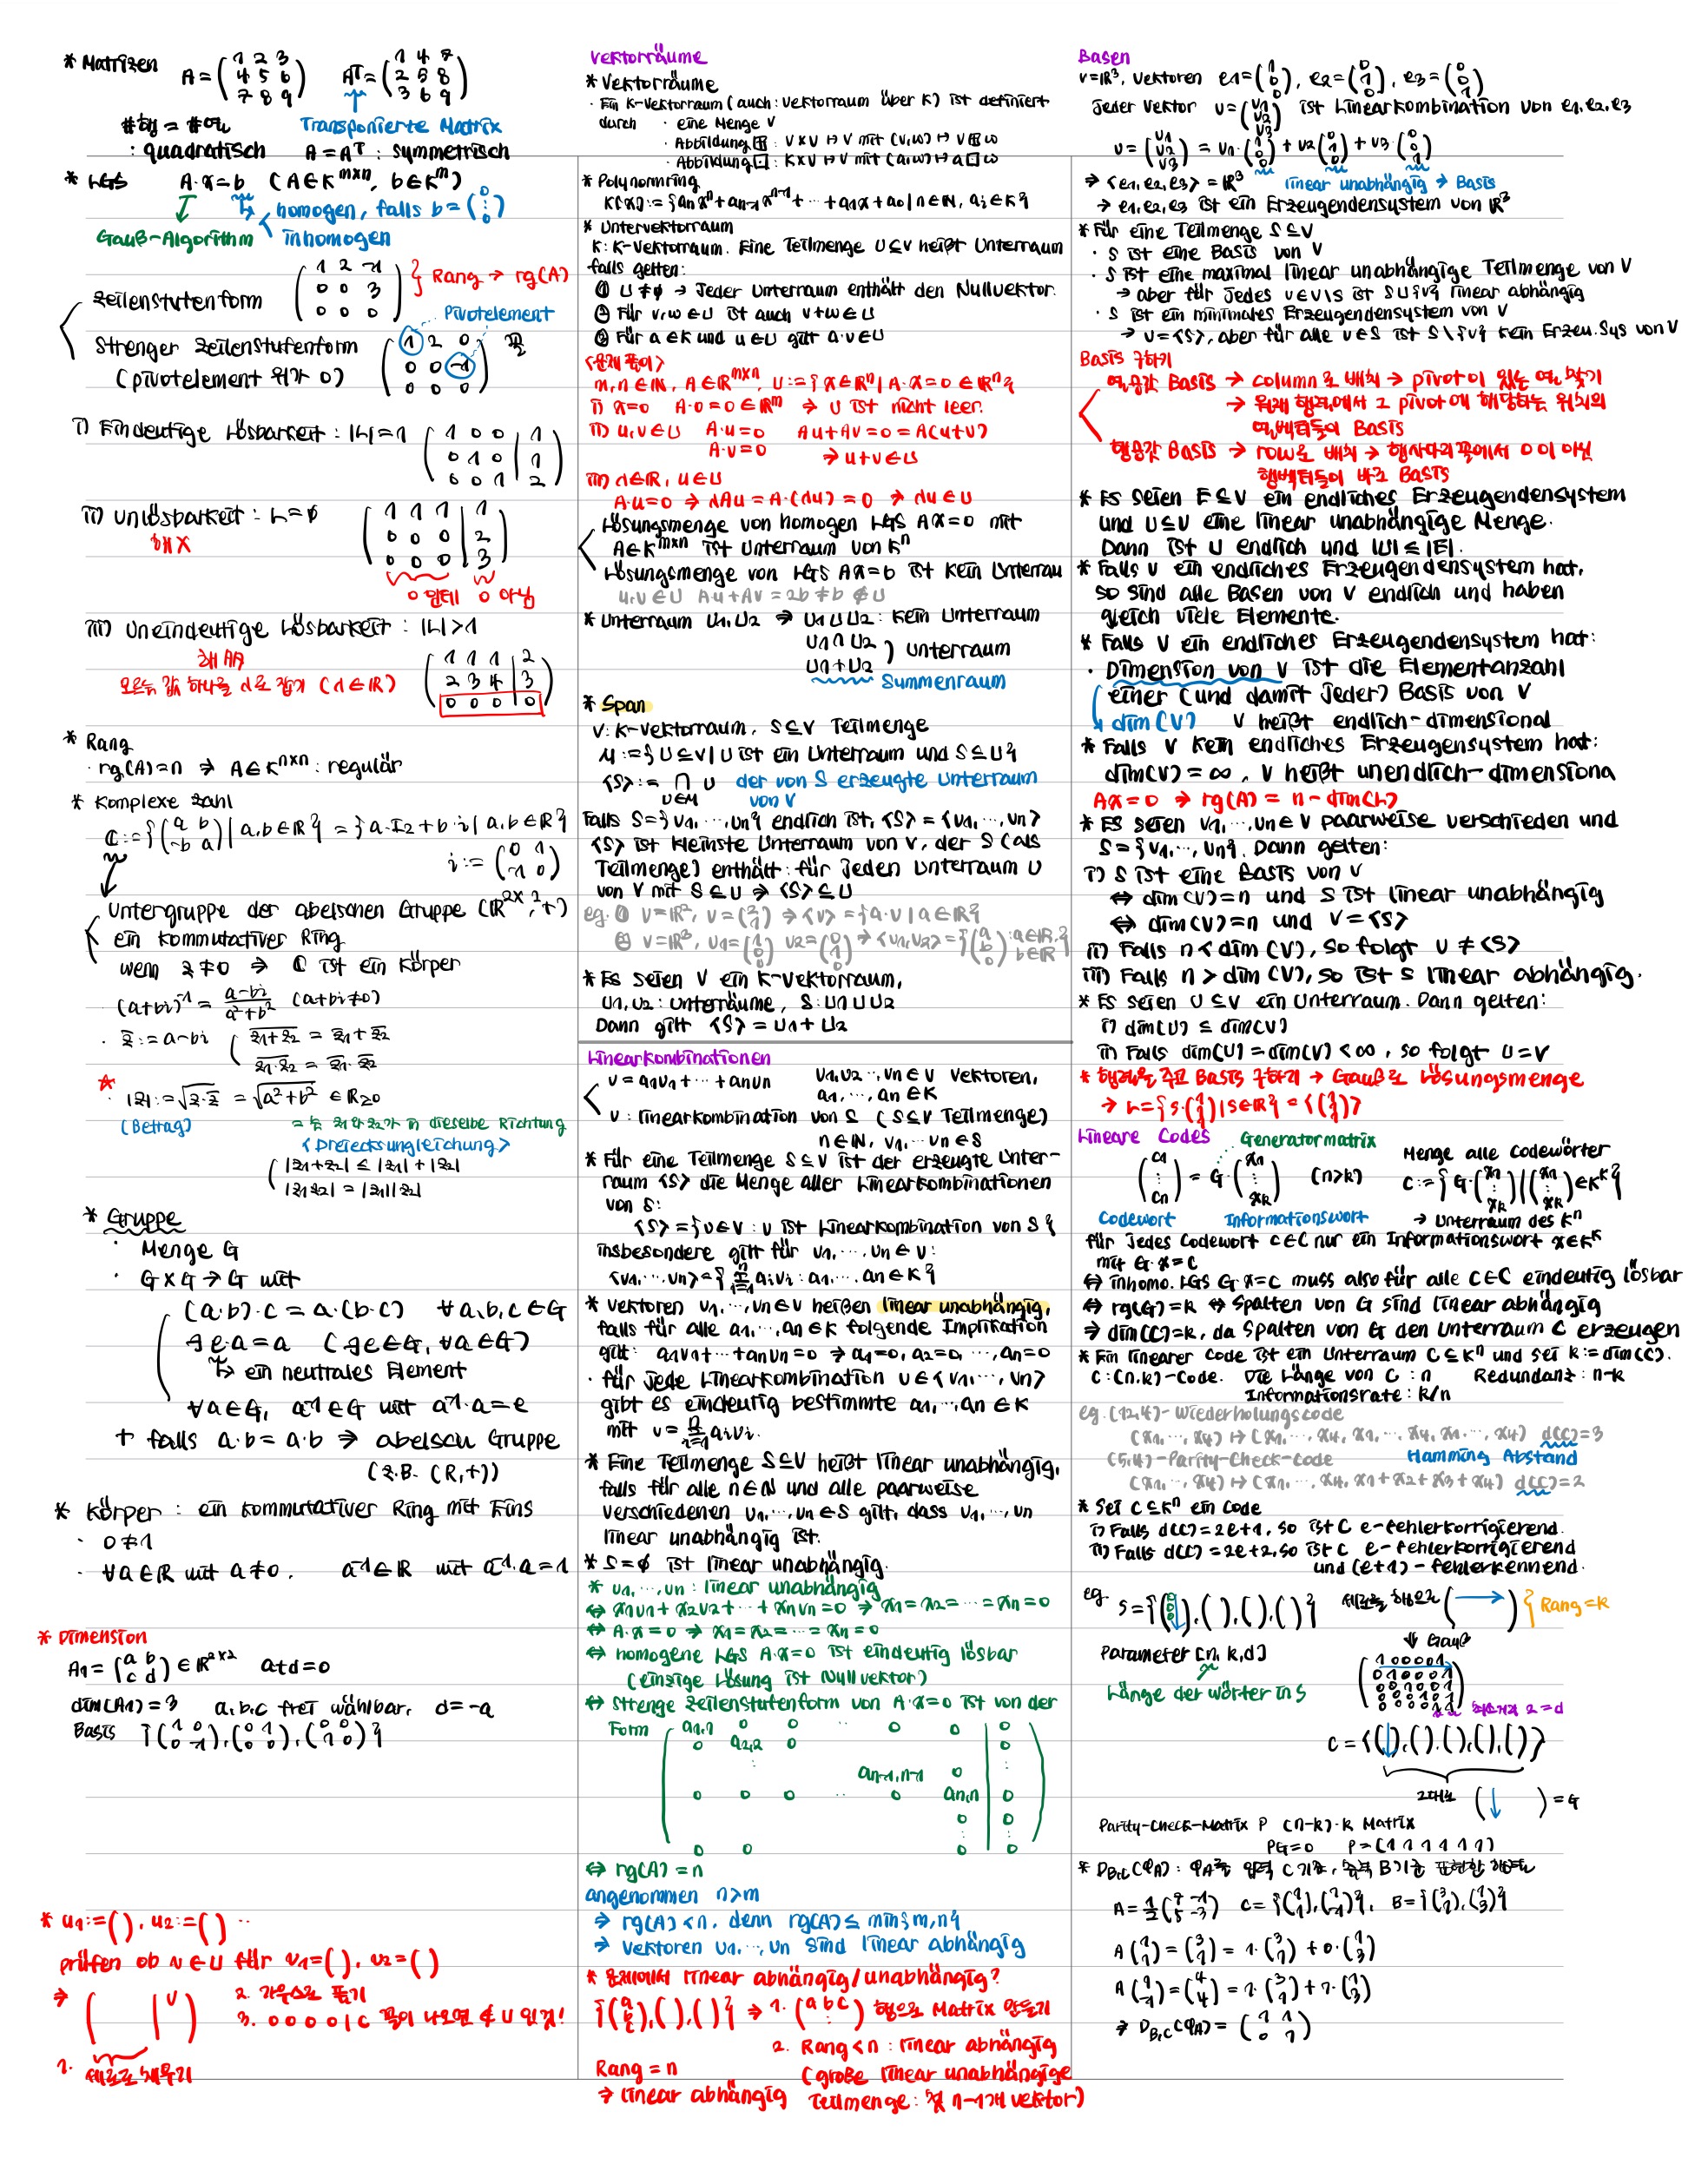 * Matrizen A = (1 2 3 / 4 5 6 / 7 8 9) Aᵀ = (1 4 7 / 2 5 8 / 3 6 9)
#행 = #열 Transponierte Matrix
: quadratisch A = Aᵀ : symmetrisch
* LGS A·x = b (A∈K^{m×n}, b∈K^m)
homogen, falls b = (0 ⋮ 0)
Gauß-Algorithm inhomogen
(1 2 -1 / 0 0 3 / 0 0 0) } Rang → rg(A)
Zeilenstufenform
Pivotelement
Strenger Zeilenstufenform (1 2 0 / 0 0 -1 / 0 0 0)
(pivotelement 위가 0)
i) Eindeutige Lösbarkeit : |L|=1 (1 0 0 | 1 / 0 1 0 | 1 / 0 0 1 | 2)
ii) Unlösbarkeit : L=∅ (1 1 1 | 1 / 0 0 0 | 2 / 0 0 0 | 3)
해 X
0 인데 0 아님
iii) Uneindeutige Lösbarkeit : |L|>1
(1 1 1 | 2 / 2 3 4 | 3 / 0 0 0 | 0)
모르는 값 하나를 λ로 잡기 (λ∈ℝ)
* Rang
· rg(A)=n ⇒ A∈K^{n×n} : regulär
* Komplexe Zahl
ℂ := {(a b / -b a) | a,b∈ℝ} = {a·I₂ + b·i | a,b∈ℝ}
i := (0 1 / -1 0)
Untergruppe der abelschen Gruppe (ℝ^{2×2}, +)
ein kommutativer Ring
wenn z≠0 ⇒ ℂ ist ein Körper
· (a+bi)⁻¹ = (a-bi)/(a²+b²) (a+bi≠0)
· z̄ := a-bi ( \overline{z1+z2} = z̄1+z̄2
\overline{z1·z2} = z̄1·z̄2
☆ · |z| := √(z·z̄) = √(a²+b²) ∈ ℝ≥0
(Betrag) dieselbe Richtung
<Dreiecksungleichung>
|z1+z2| ≤ |z1| + |z2|
|z1z2| = |z1||z2|
* Gruppe
· Menge G
· G×G → G mit
(a·b)·c = a·(b·c) ∀a,b,c∈G
∃ e·a=a (∃e∈G, ∀a∈G)
↳ ein neutrales Element
∀a∈G, a⁻¹∈G mit a⁻¹·a=e
+ falls a·b = a·b ⇒ abelsch Gruppe
(z.B. (R,+))
* Körper : ein kommutativer Ring mit Eins
· 0≠1
· ∀a∈R mit a≠0, a⁻¹∈R mit a⁻¹·a=1
* Dimension
A1 = (a b / c d) ∈ ℝ^{2×2} a+d=0
dim(A1)=3 a,b,c frei wählbar, d=-a
Basis {(1 0 / 0 -1), (0 1 / 0 0), (0 0 / 1 0)}
* u1:=( ), u2:=( ) ··
prüfen ob v∈U für v1=( ), v2=( )
⇒ ( | v )
2. 가우스로 풀기
3. 0 0 0 0 | c 꼴이 나오면 ∉ U 인것!
1. 세로로 채우기
Vektorräume
* Vektorräume
· Ein K-Vektorraum (auch: Vektorraum über K) ist definiert
durch · eine Menge V
· Abbildung ⊞ : V×V → V mit (v,w) ↦ v⊞w
· Abbildung ⊡ : K×V → V mit (a,w) ↦ a⊡w
* Polynomring
K[x] := {anxⁿ + an-1xⁿ⁻¹ + ··· + a1x + a0 | n∈ℕ, ai∈K}
* Untervektorraum
K: K-Vektorraum. Eine Teilmenge U⊆V heißt Unterraum
falls gelten:
① U≠∅ → Jeder Unterraum enthält den Nullvektor.
② Für v,w∈U ist auch v+w∈U
③ Für a∈K und u∈U gilt a·v∈U
<문제 풀이>
m,n∈ℕ, A∈ℝ^{m×n}, U:={x∈ℝⁿ | A·x=0∈ℝⁿ}
i) x=0 A·0=0∈ℝ^m ⇒ U ist nicht leer.
ii) u,v∈U A·u=0 Au+Av=0=A(u+v)
A·v=0 ⇒ u+v∈U
iii) λ∈ℝ, u∈U
A·u=0 ⇒ λAu=A·(λu)=0 ⇒ λu∈U
Lösungsmenge von homogen LGS Ax=0 mit
A∈K^{m×n} ist Unterraum von Kⁿ
Lösungsmenge von LGS Ax=b ist kein Unterrau
u,v∈U Au+Av=2b≠b ∉U
* Unterraum U1,U2 ⇒ U1∪U2: kein Unterraum
U1∩U2
U1+U2 ) Unterraum
Summenraum
* Span
V: K-Vektorraum, S⊆V Teilmenge
M := {U⊆V | U ist ein Unterraum und S⊆U}
<S> := ⋂_{U∈M} U der von S erzeugte Unterraum
von V
Falls S={v1,···,vn} endlich ist, <S>=<v1,···,vn>
<S> ist kleinste Unterraum von V, der S (als
Teilmenge) enthält: für jeden Unterraum U
von V mit S⊆U ⇒ <S>⊆U
eg. ① V=ℝ², v=(2/1) ⇒ <v>={a·v | a∈ℝ}
② V=ℝ³, v1=(1/0/0) v2=(0/1/0) ⇒ <v1,v2>={(a/b/0) : a∈ℝ, b∈ℝ}
* Es seien V ein K-Vektorraum,
U1,U2: Unterräume, S:U1∪U2
Dann gilt <S>=U1+U2
Linearkombinationen
v=a1v1+···+anvn v1,v2···,vn∈V Vektoren,
a1,···,an∈K
v : linearkombination von S (S⊆V Teilmenge)
n∈ℕ, v1,··· vn∈S
* Für eine Teilmenge S⊆V ist der erzeugte Unter-
raum <S> die Menge aller Linearkombinationen
von S:
<S>={v∈V : v ist Linearkombination von S}
insbesondere gilt für v1,···,vn∈V:
<v1,···,vn>={∑_{i=1}^n aivi : a1,···,an∈K}
* Vektoren v1,···,vn∈V heißen linear unabhängig,
falls für alle a1,···,an∈K folgende Implikation
gilt: a1v1+···+anvn=0 ⇒ a1=0, a2=0,···,an=0
· für jede Linearkombination v∈<v1,···,vn>
gibt es eindeutig bestimmte a1,···,an∈K
mit v=∑_{i=1}^n aivi.
* Eine Teilmenge S⊆V heißt linear unabhängig,
falls für alle n∈ℕ und alle paarweise
verschiedenen v1,···,vn∈S gilt, dass v1,···,vn
linear unabhängig ist.
* S=∅ ist linear unabhängig.
* v1,···,vn : linear unabhängig
⇔ x1v1+x2v2+···+xnvn=0 ⇒ x1=x2=···=xn=0
⇔ A·x=0 ⇒ x1=x2=···=xn=0
⇔ homogene LGS A·x=0 ist eindeutig lösbar
(einzige Lösung ist Nullvektor)
⇔ Strenge Zeilenstufenform von A·x=0 ist von der
Form a1,1 0 0 ·· 0 0 | 0
0 a2,2 0 | 0
an-1,n-1 0
0 0 0 ·· 0 an,n | 0
0 | 0
0 0 0 | 0
⇔ rg(A)=n
angenommen n>m
⇒ rg(A)<n, denn rg(A)≤min{m,n}
⇒ Vektoren v1,···,vn sind linear abhängig
* 문제에서 linear abhängig/unabhängig?
{(a/b/c),( ),( )} ⇒ 1. (a b c) 행으로 Matrix 만들기
2. Rang<n : linear abhängig
Rang=n (große linear unabhängige
⇒ linear abhängig Teilmenge: n-1개 vektor)
Basen
V=ℝ³, Vektoren e1=(1/0/0), e2=(0/1/0), e3=(0/0/1)
Jeder Vektor v=(v1/v2/v3) ist Linearkombination von e1,e2,e3
v=(v1/v2/v3)=v1·(1/0/0)+v2(0/1/0)+v3(0/0/1)
⇒ <e1,e2,e3>=ℝ³ linear unabhängig → Basis
→ e1,e2,e3 ist ein Erzeugendensystem von ℝ³
* Für eine Teilmenge S⊆V
· S ist eine Basis von V
· S ist eine maximal linear unabhängige Teilmenge von V
→ aber für jedes v∈V\S ist S∪{v} linear abhängig
· S ist ein minimales Erzeugendensystem von V
→ V=<S>, aber für alle v∈S ist S\{v} kein Erzeu.Sys von V
Basis 구하기
열공간 Basis → column로 배치 → pivot이 있는 열 찾기
→ 원래 행렬에서 그 pivot에 해당하는 위치의
열벡터들이 Basis
행공간 Basis → row로 배치 → 행사다리꼴에서 0이 아닌
행벡터들이 바로 Basis
* Es seien E⊆V ein endliches Erzeugendensystem
und U⊆V eine linear unabhängige Menge.
Dann ist U endlich und |U|≤|E|.
* Falls V ein endliches Erzeugendensystem hat,
so sind alle Basen von V endlich und haben
gleich viele Elemente.
* Falls V ein endliches Erzeugendensystem hat:
· Dimension von V ist die Elementanzahl
einer (und damit jeder) Basis von V
dim(V) V heißt endlich-dimensional
* Falls V kein endliches Erzeugensystem hat:
dim(V)=∞, V heißt unendlich-dimensiona
Ax=0 ⇒ rg(A)=n-dim(L)
* Es seien v1,···,vn∈V paarweise verschieden und
S={v1,···,vn}. Dann gelten:
i) S ist eine Basis von V
⇔ dim(V)=n und S ist linear unabhängig
⇔ dim(V)=n und V=<S>
ii) Falls n<dim(V), so folgt V≠<S>
iii) Falls n>dim(V), so ist S linear abhängig.
* Es seien U⊆V ein Unterraum. Dann gelten:
i) dim(U)≤dim(V)
ii) Falls dim(U)=dim(V)<∞, so folgt U=V
* 행렬을 주고 Basis 구하기 → Gauß로 Lösungsmenge
Lineare Codes Generatormatrix
(c1 ⋮ cn) = G·(x1 ⋮ xk) (n>k) Menge alle Codewörter
C:={G·(x1 ⋮ xk) | (x1 ⋮ xk)∈K^k}
Codewort Informationswort → Unterraum des Kⁿ
für jedes Codewort c∈C nur ein Informationswort x∈K^k
mit G·x=c
⇔ inhomo. LGS G·x=c muss also für alle c∈C eindeutig lösbar
⇔ rg(G)=k ⇔ Spalten von G sind linear abhängig
⇒ dim(C)=k, da Spalten von G den Unterraum C erzeugen
* Ein linearer Code ist ein Unterraum C⊆Kⁿ und sei k:=dim(C).
C:(n,k)-Code. Die Länge von C : n Redundanz: n-k
Informationsrate: k/n
eg. (12,4)-Wiederholungscode
(x1,···,x4) ↦ (x1,···,x4, x1,···,x4, x1,···,x4) d(C)=3
(5,4)-Parity-Check-Code Hamming Abstand
(x1,···,x4) ↦ (x1,···,x4, x1+x2+x3+x4) d(C)=2
* Sei C⊆Kⁿ ein Code
i) Falls d(C)=2e+1, so ist C e-fehlerkorrigierend.
ii) Falls d(C)=2e+2, so ist C e-fehlerkorrigierend
und (e+1)-fehlerkennend.
eg. S={( ),( ),( ),( )} 세로를 행으로 (→) } Rang=k
⇓ Gauß
Parameter [n,k,d]
Länge der Wörter in S
최소거리 2=d
C=<( ),( ),( ),( ),( )>
그대로 (↓ )=G
Parity-Check-Matrix P (n-k)·k Matrix
PG=0 P=(1 1 1 1 1 1)
* D_{B,C}(φA) : φA를 입력 C기준, 출력 B기준 표현한 행렬
A=½(7 -1 / 5 -3) C={(1/1),(1/-1)}, B={(3/1),(1/3)}
A(1/1)=(3/1)=1·(3/1)+0·(1/3)
A(1/-1)=(4/4)=1·(3/1)+1·(1/3)
⇒ D_{B,C}(φA)=(1 1 / 0 1)